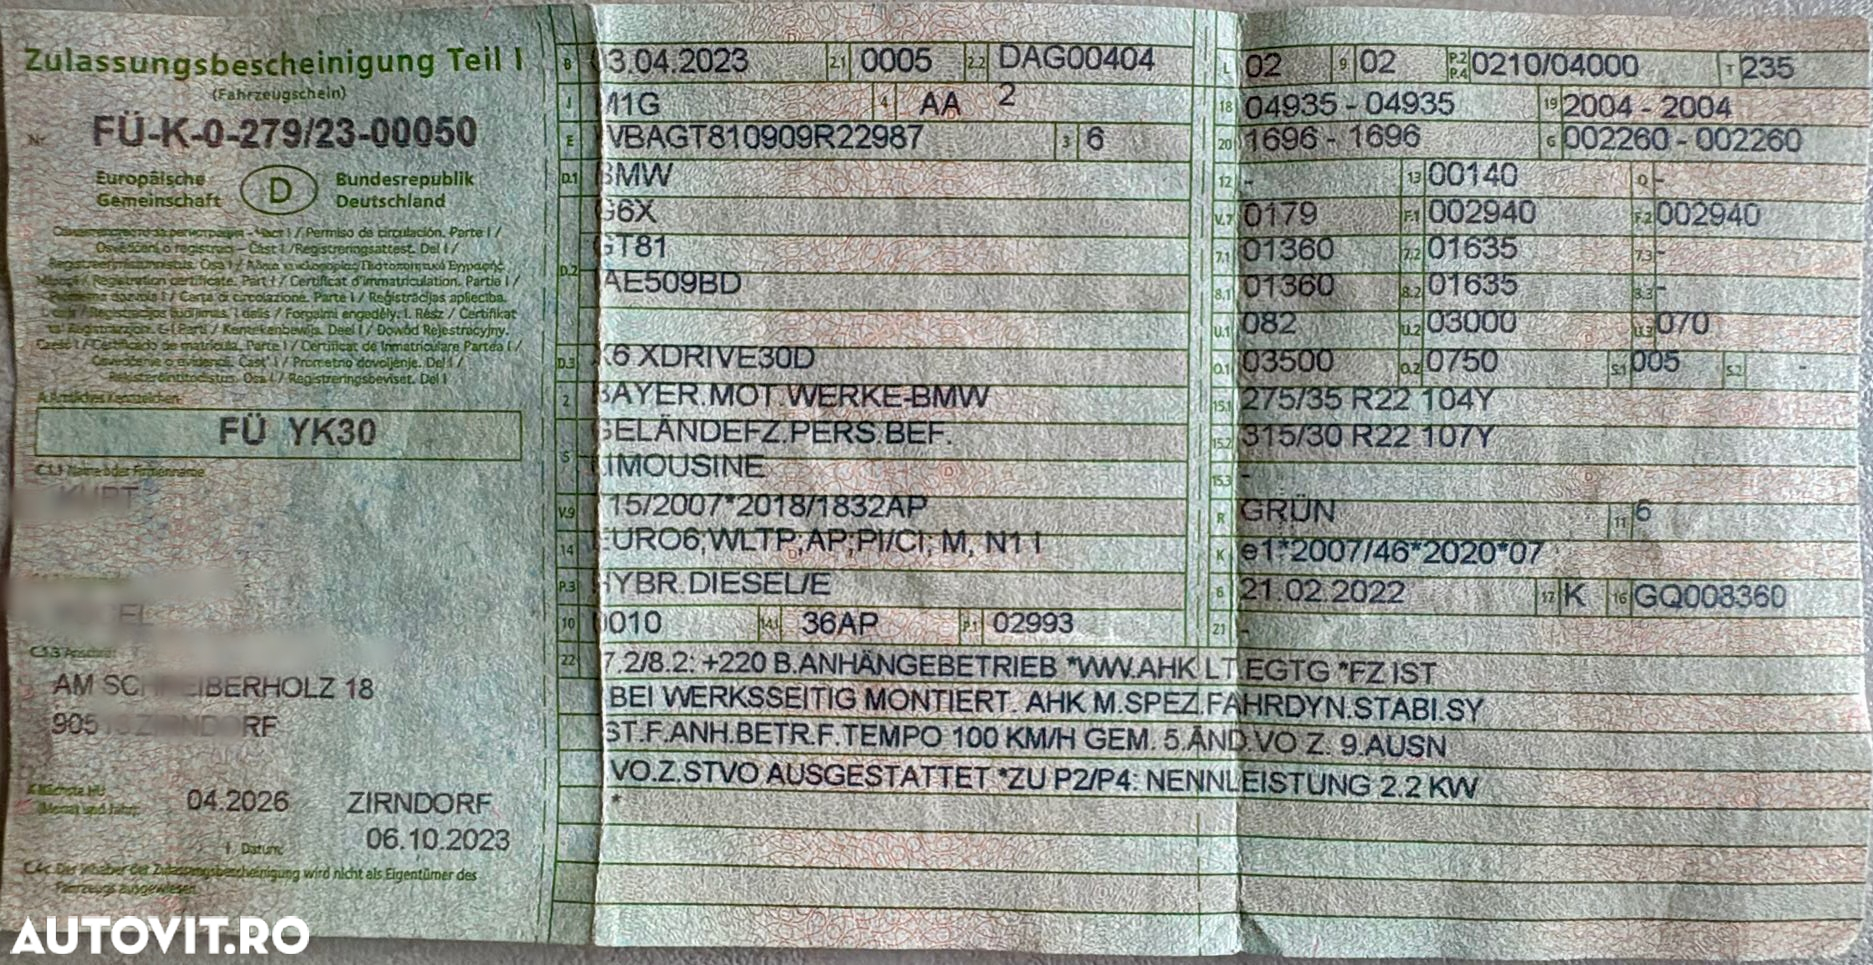 Zulassungsbescheinigung Teil I
(Fahrzeugschein)
Nr. FÜ-K-0-279/23-00050
Europäische Gemeinschaft D Bundesrepublik Deutschland
Permiso de circulación. Parte I /
Osvědčení o registraci - Část I /Registreringsattest. Del I /
Registration certificate. Part I / Certificat d'immatriculation. Partie I /
Carta di circolazione. Parte I / Reģistrācijas apliecība.
I. dalis / Forgalmi engedély. I. Rész / Certifikat
Kentekenbewijs. Deel I / Dowód Rejestracyjny.
Część I / Certificado de matrícula. Parte I / Certificat de Inmatriculare Partea I /
Osvedčenie o evidencii. Časť I / Prometno dovoljenje. Del I /
Rekisteröintitodistus. Osa I / Registreringsbeviset. Del I
FÜ YK30
C.1.1 Name oder Firmenname
KURT
C.1.3 Anschrift
AM SC EIBERHOLZ 18
905 ZIRNDORF
Nächste HU
(Monat und Jahr) 04.2026 ZIRNDORF
Datum: 06.10.2023
C.4c Der Inhaber der Zulassungsbescheinigung wird nicht als Eigentümer des
Fahrzeugs ausgewiesen.
B 3.04.2023 2.1 0005 2.2 DAG00404
J M1G 4 AA 2
E VBAGT810909R22987 3 6
D.1 BMW
G6X
D.2 GT81
AE509BD
D.3 X6 XDRIVE30D
2 BAYER.MOT.WERKE-BMW
GELÄNDEFZ.PERS.BEF.
5 LIMOUSINE
V.9 15/2007*2018/1832AP
14 EURO6;WLTP;AP;PI/CI; M, N1 I
P.3 HYBR.DIESEL/E
10 0010 14.1 36AP P.1 02993
L 02 9 02 P.2 P.4 0210/04000 T 235
18 04935 - 04935 19 2004 - 2004
20 1696 - 1696 G 002260 - 002260
12 - 13 00140 Q -
V.7 0179 F.1 002940 F.2 002940
7.1 01360 7.2 01635 7.3 -
8.1 01360 8.2 01635 8.3 -
U.1 082 U.2 03000 U.3 070
O.1 03500 O.2 0750 S.1 005 S.2 -
15.1 275/35 R22 104Y
15.2 315/30 R22 107Y
15.3 -
R GRÜN 11 6
K e1*2007/46*2020*07
6 21.02.2022 17 K 16 GQ008360
21 -
22 7.2/8.2: +220 B.ANHÄNGEBETRIEB *WW.AHK LT.EGTG *FZ IST
BEI WERKSSEITIG MONTIERT. AHK M.SPEZ.FAHRDYN.STABI.SY
ST.F.ANH.BETR.F.TEMPO 100 KM/H GEM. 5.ÄND.VO Z. 9.AUSN
VO.Z.STVO AUSGESTATTET *ZU P2/P4: NENNLEISTUNG 2.2 KW
*
AUTOVIT.RO